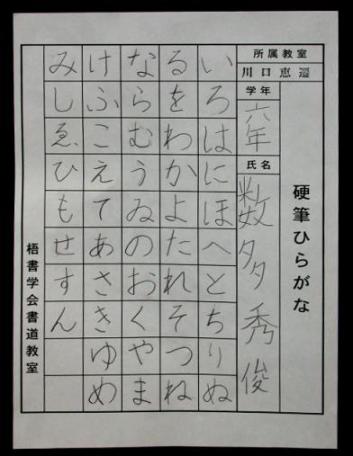 硬筆ひらがな
所属教室
川口
学年
六年
氏名
数夛秀俊
いろはにほへとちりぬ
るをわかよたれそつね
ならむうゐのおくやま
けふこえてあさきゆめ
みしゑひもせすん
梧書学会書道教室